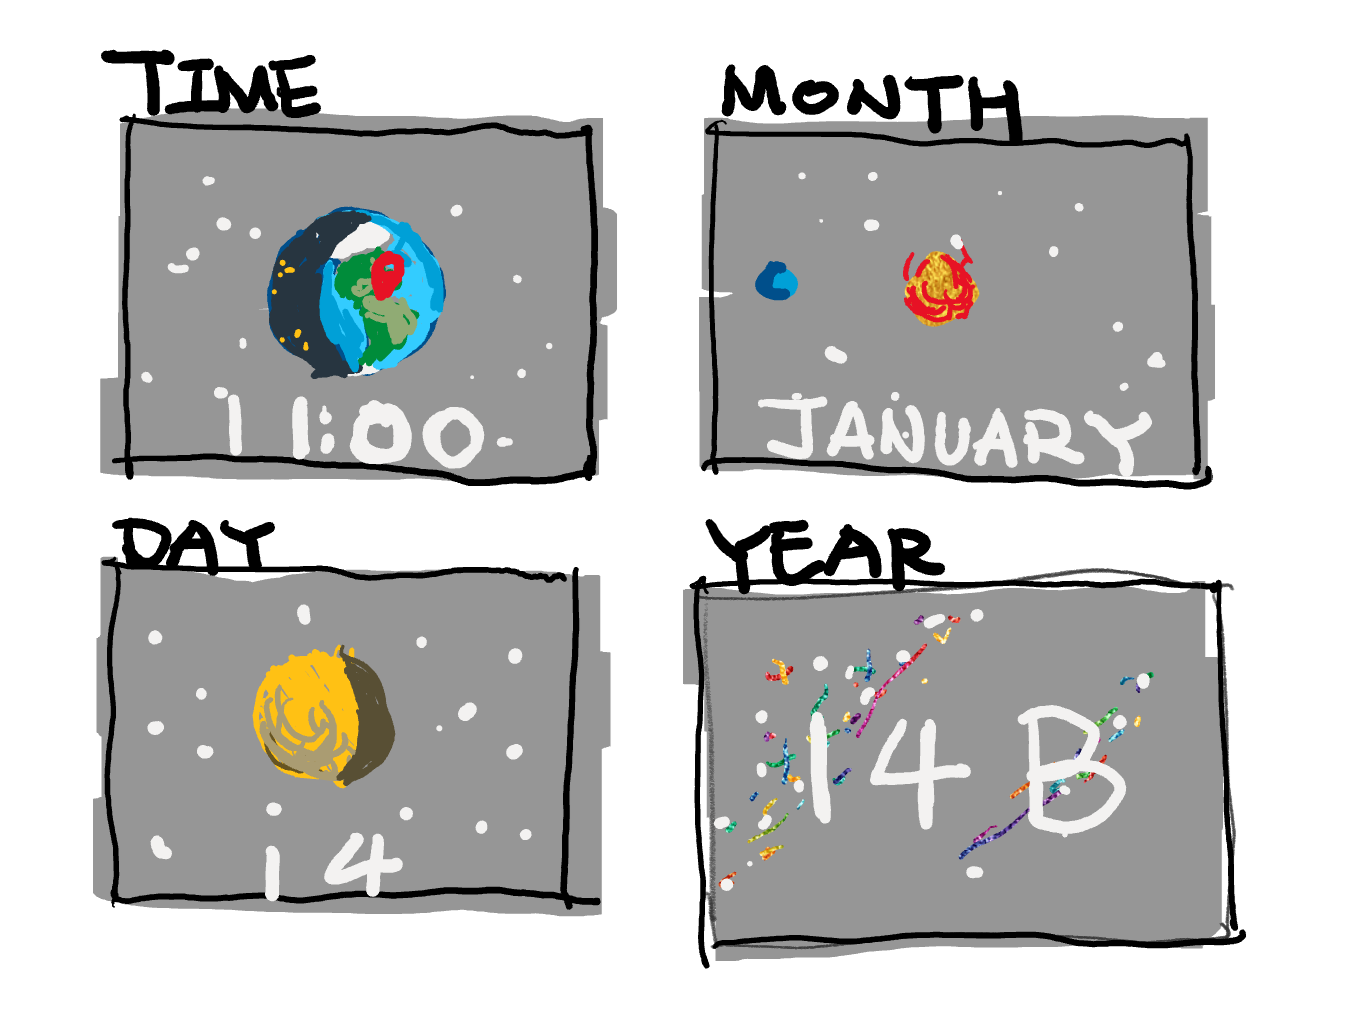 TIME
11:00
MONTH
JANUARY
DAY
14
YEAR
14 B